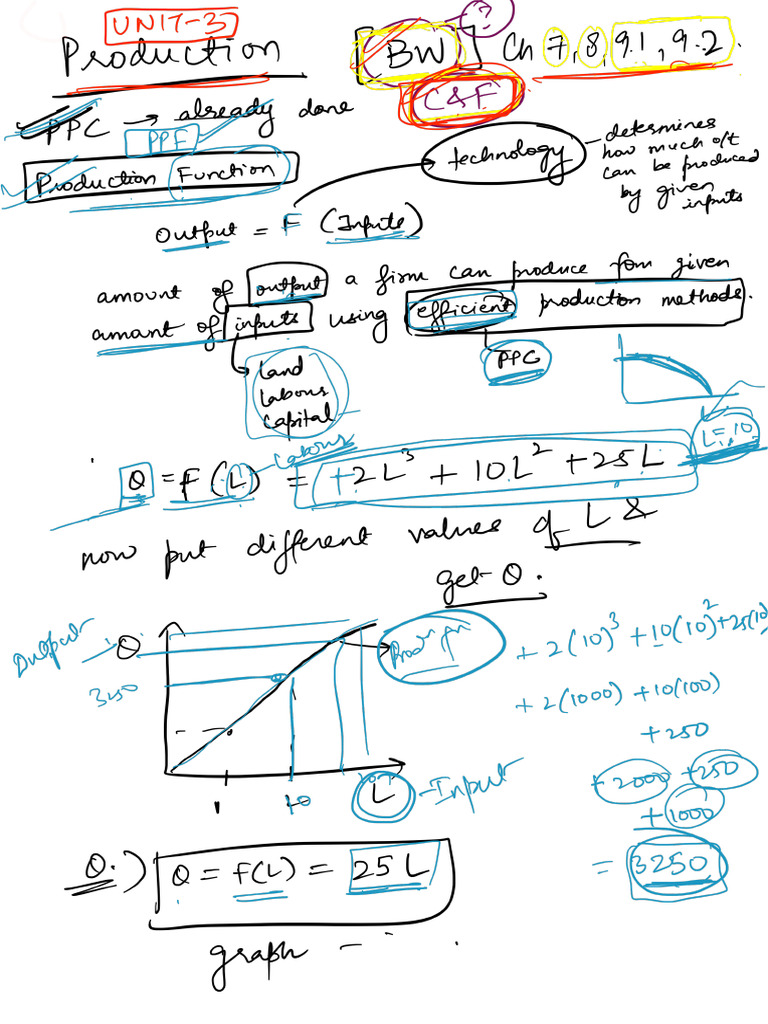 UNIT-3
Production [BW] Ch 7, 8, 9.1, 9.2.
?
C&F
PPC → already done
PPF
Production Function
technology
- determines how much o/t can be produced by given inputs
Output = F (Inputs)
amount of output a firm can produce fom given
amant of inputs using efficient production methods.
Land
Labour
Capital
PPC
L=10
Labour
Q = F(L) = +2L³ + 10L² + 25L
now put different values of L &
get Q.
Output → Q
Prod fn
3250
1
10
L - Input
+ 2(10)³ + 10(10)² + 25(10)
+ 2(1000) + 10(100)
+ 250
+2000 + 250
+ 1000
= 3250
Q.) Q = f(L) = 25 L
graph -